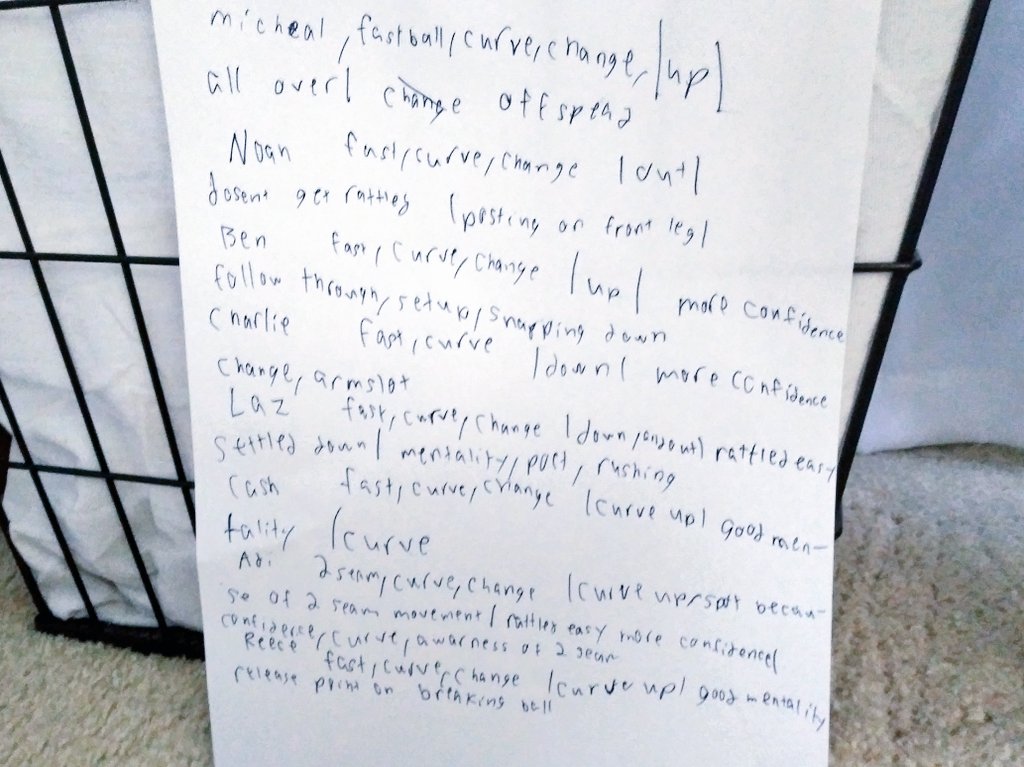 micheal, fastball, curve, change, |up|
all over| change offspead
Noah fast, curve, change |out|
dosent get rattled |posting on front leg|
Ben fast, curve, change |up| more confidence
follow through, setup, snapping down
Charlie fast, curve |down| more confidence
change, armslot
Laz fast, curve, change |down, and out| rattled easy
settled down| mentality, post, rushing
Cash fast, curve, change |curve up| good men-
tality |curve
2 seam, curve, change |curve up, spot becau-
se of 2 seam movement| rattles easy more confidence|
confidence, curve, awarness of 2 seam
Reece fast, curve, change |curve up| good mentality
release point on breaking ball